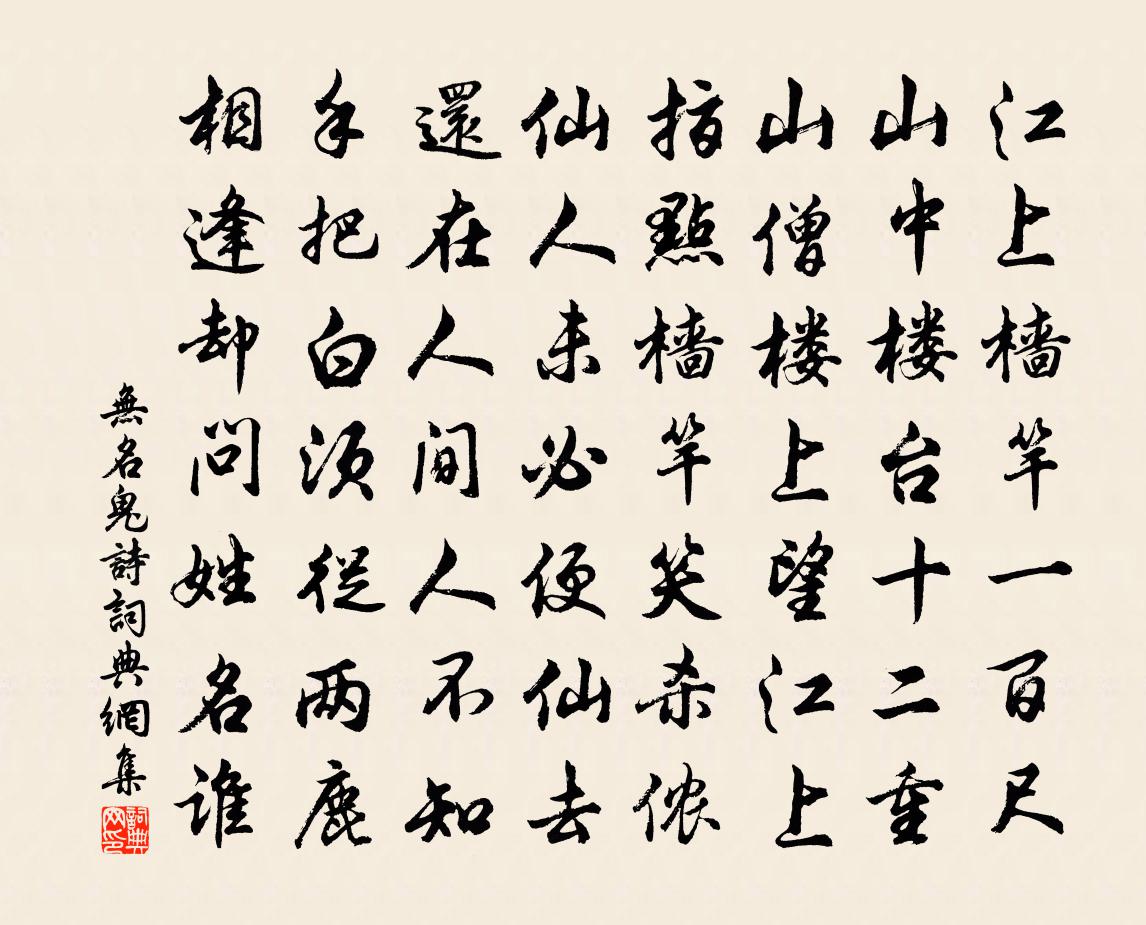 江上樯竿一百尺
山中楼台十二重
山僧楼上望江上
指點樯竿笑杀侬
仙人未必便仙去
還在人间人不知
手把白须従两鹿
相逢却问姓名谁
無名鬼詩詞典網集
詞典网印